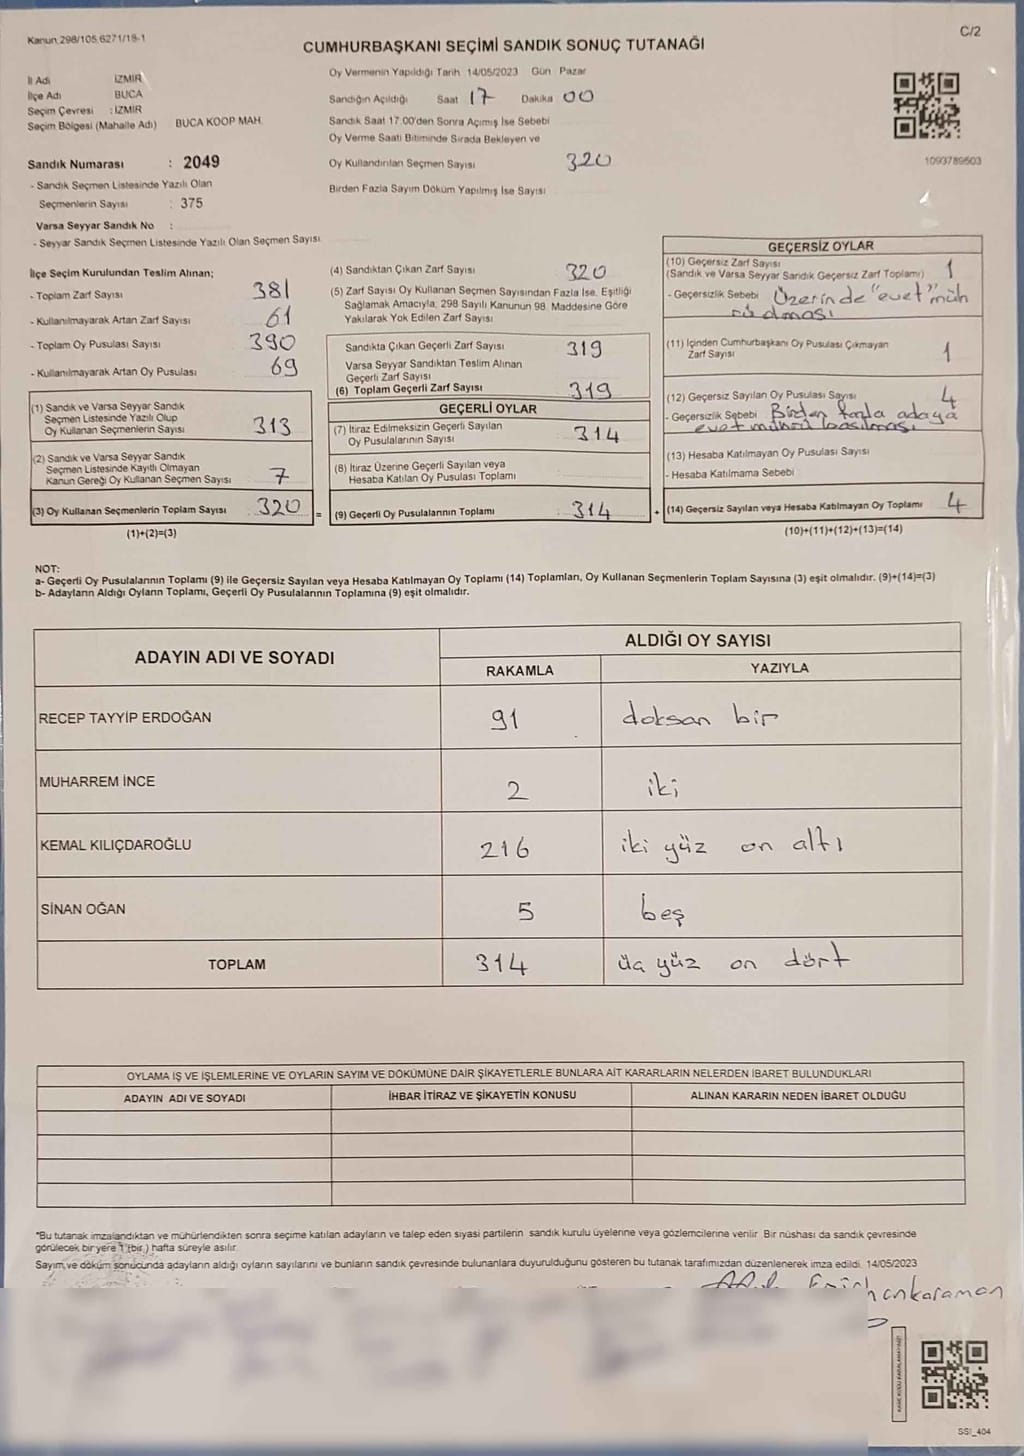 Kanun 298/105,6271/18-1
C/2
CUMHURBAŞKANI SEÇİMİ SANDIK SONUÇ TUTANAĞI
İl Adı İZMİR
İlçe Adı BUCA
Seçim Çevresi : İZMİR
Seçim Bölgesi (Mahalle Adı) BUCA KOOP MAH.
Sandık Numarası : 2049
- Sandık Seçmen Listesinde Yazılı Olan
Seçmenlerin Sayısı : 375
Varsa Seyyar Sandık No :
- Seyyar Sandık Seçmen Listesinde Yazılı Olan Seçmen Sayısı
Oy Vermenin Yapıldığı Tarih 14/05/2023 Gün Pazar
Sandığın Açıldığı Saat 17 Dakika 00
Sandık Saat 17:00'den Sonra Açımış İse Sebebi
Oy Verme Saati Bitiminde Sırada Bekleyen ve
Oy Kullandırılan Seçmen Sayısı 320
Birden Fazla Sayım Döküm Yapılmış İse Sayısı
1093789503
İlçe Seçim Kurulundan Teslim Alınan;
- Toplam Zarf Sayısı 381
- Kullanılmayarak Artan Zarf Sayısı 61
- Toplam Oy Pusulası Sayısı 390
- Kullanılmayarak Artan Oy Pusulası 69
(1) Sandık ve Varsa Seyyar Sandık
Seçmen Listesinde Yazılı Olup
Oy Kullanan Seçmenlerin Sayısı 313
(2) Sandık ve Varsa Seyyar Sandık
Seçmen Listesinde Kayıtlı Olmayan
Kanun Gereği Oy Kullanan Seçmen Sayısı 7
(3) Oy Kullanan Seçmenlerin Toplam Sayısı 320 =
(1)+(2)=(3)
(4) Sandıktan Çıkan Zarf Sayısı 320
(5) Zarf Sayısı Oy Kullanan Seçmen Sayısından Fazla İse, Eşitliği
Sağlamak Amacıyla, 298 Sayılı Kanunun 98. Maddesine Göre
Yakılarak Yok Edilen Zarf Sayısı
Sandıkta Çıkan Geçerli Zarf Sayısı 319
Varsa Seyyar Sandıktan Teslim Alınan
Geçerli Zarf Sayısı
(6) Toplam Geçerli Zarf Sayısı 319
GEÇERLİ OYLAR
(7) İtiraz Edilmeksizin Geçerli Sayılan
Oy Pusulalarının Sayısı 314
(8) İtiraz Üzerine Geçerli Sayılan veya
Hesaba Katılan Oy Pusulası Toplamı
(9) Geçerli Oy Pusulalarının Toplamı 314 +
GEÇERSİZ OYLAR
(10) Geçersiz Zarf Sayısı
(Sandık ve Varsa Seyyar Sandık Geçersiz Zarf Toplamı) 1
- Geçersizlik Sebebi Üzerinde "evet" müh
rü olması
(11) İçinden Cumhurbaşkanı Oy Pusulası Çıkmayan
Zarf Sayısı 1
(12) Geçersiz Sayılan Oy Pusulası Sayısı 4
- Geçersizlik Sebebi Birden fazla adaya
evet mührü basılması
(13) Hesaba Katılmayan Oy Pusulası Sayısı
- Hesaba Katılmama Sebebi
(14) Geçersiz Sayılan veya Hesaba Katılmayan Oy Toplamı 4
(10)+(11)+(12)+(13)=(14)
NOT:
a- Geçerli Oy Pusulalarının Toplamı (9) ile Geçersiz Sayılan veya Hesaba Katılmayan Oy Toplamı (14) Toplamları, Oy Kullanan Seçmenlerin Toplam Sayısına (3) eşit olmalıdır. (9)+(14)=(3)
b- Adayların Aldığı Oyların Toplamı, Geçerli Oy Pusulalarının Toplamına (9) eşit olmalıdır.
ADAYIN ADI VE SOYADI
ALDIĞI OY SAYISI
RAKAMLA YAZIYLA
RECEP TAYYİP ERDOĞAN 91 doksan bir
MUHARREM İNCE 2 iki
KEMAL KILIÇDAROĞLU 216 iki yüz on altı
SİNAN OĞAN 5 beş
TOPLAM 314 üç yüz on dört
OYLAMA İŞ VE İŞLEMLERİNE VE OYLARIN SAYIM VE DÖKÜMÜNE DAİR ŞİKAYETLERLE BUNLARA AİT KARARLARIN NELERDEN İBARET BULUNDUKLARI
ADAYIN ADI VE SOYADI İHBAR İTİRAZ VE ŞİKAYETİN KONUSU ALINAN KARARIN NEDEN İBARET OLDUĞU
*Bu tutanak imzalandıktan ve mühürlendikten sonra seçime katılan adayların ve talep eden siyasi partilerin sandık kurulu üyelerine veya gözlemcilerine verilir. Bir nüshası da sandık çevresinde
görülecek bir yere 1 (bir ) hafta süreyle asılır.
Sayım ve döküm sonucunda adayların aldığı oyların sayılarını ve bunların sandık çevresinde bulunanlara duyurulduğunu gösteren bu tutanak tarafımızdan düzenlenerek imza edildi. 14/05/2023
SSI_404